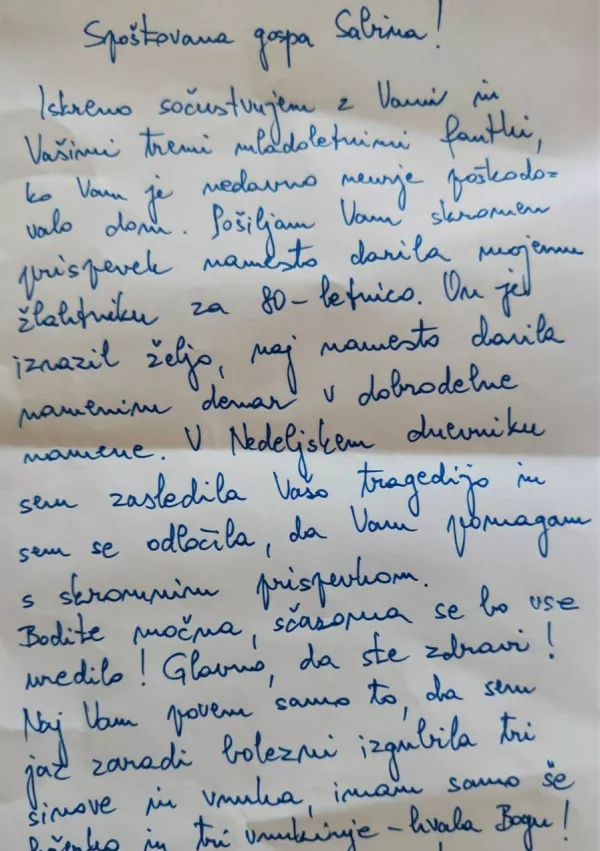 Spoštovana gospa Sabina!
Iskreno sočustvujem z Vami in
Vašimi tremi mladoletnimi fantki,
ko Vam je nedavno neurje poškodo=
valo dom. Pošiljam Vam skromen
prispevek namesto darila mojemu
žlahtniku za 80-letnico. On je
izrazil željo, naj namesto darila
namenim denar v dobrodelne
namene. V Nedeljskem dnevniku
sem zasledila Vašo tragedijo in
sem se odločila, da Vam pomagam
s skromnim prispevkom.
Bodite močna, sčasoma se bo vse
uredilo! Glavno, da ste zdravi!
Naj Vam povem samo to, da sem
jaz zaradi bolezni izgubila tri
sinove in vnuka, imam samo še
in tri vnukinje - hvala Bogu!